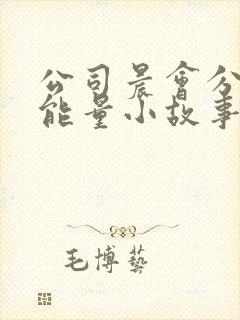 公司晨會分
能量小故事
毛博藝